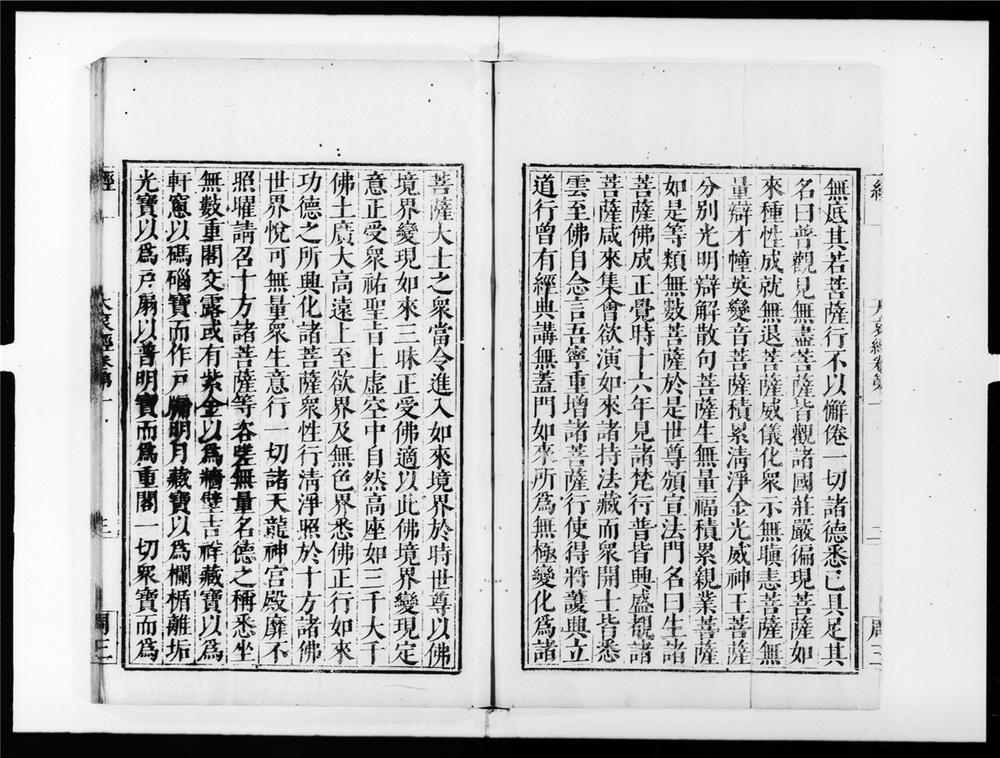 經
大哀經卷第一
二
周三
無底其若菩薩行不以懈倦一切諸德悉已具足其
名曰普觀見無盡菩薩皆觀諸國莊嚴徧現菩薩如
來種性成就無退菩薩威儀化衆示無瞋恚菩薩無
量辯才幢英變音菩薩積累淸淨金光威神王菩薩
分別光明辯解散句菩薩生無量福積累親業菩薩
如是等類無數菩薩於是世尊頒宣法門名曰生諸
菩薩佛成正覺時十六年見諸梵行普皆興盛覩諸
菩薩咸來集會欲演如來諸持法藏而衆開士皆悉
雲至佛自念言吾寧重增諸菩薩行使得將護興立
道行曾有經典講無蓋門如來所爲無極變化爲諸
菩薩大士之衆當令進入如來境界於時世尊以佛
境界變現如來三昧正受佛適以此佛境界變現定
意正受衆祐聖旨上虛空中自然高座如三千大千
佛土廣大高遠上至欲界及無色界悉佛正行如來
功德之所興化諸菩薩衆性行淸淨照於十方諸佛
世界悅可無量衆生意行一切諸天龍神宮殿靡不
照曜請召十方諸菩薩等咨嗟無量名德之稱悉坐
無數重閣交露或有紫金以爲牆壁吉祥藏寶以爲
軒窻以碼碯寶而作戸牖明月藏寶以爲欄楯離垢
光寶以爲戸扇以普明寶而爲重閣一切衆寶而爲
經
大哀經卷第一
三
周三